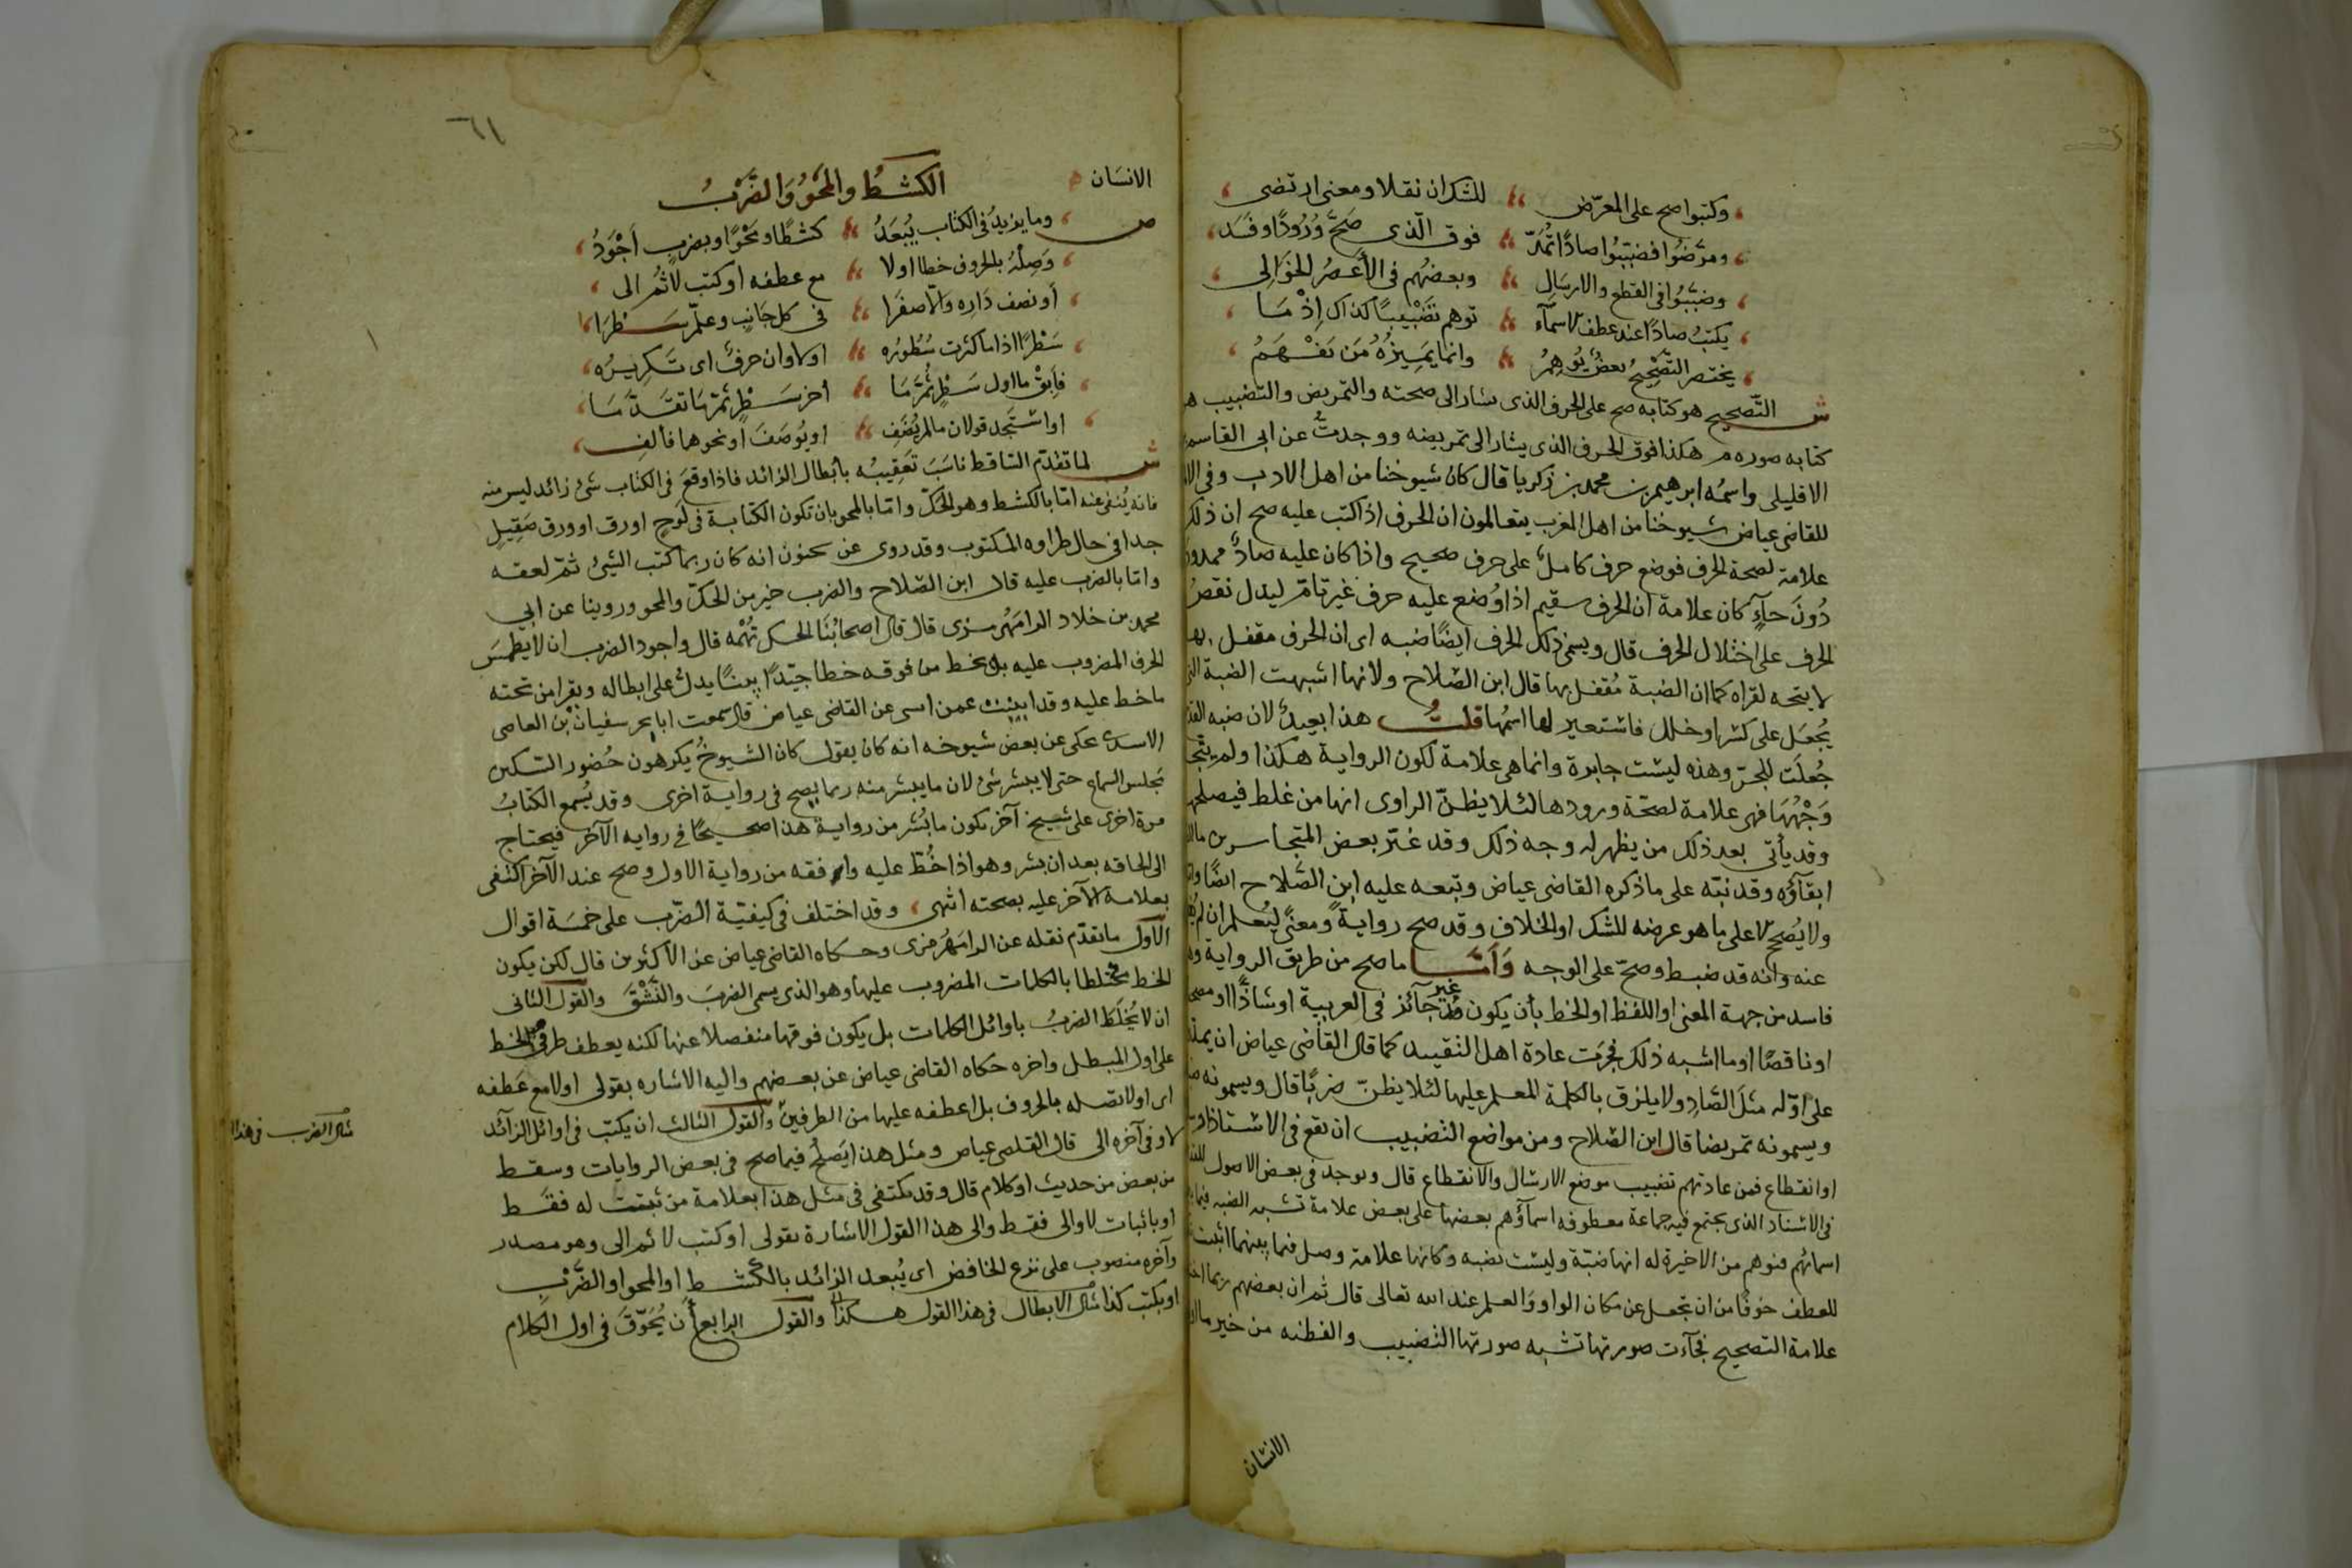 وكتبوا صح على المعرّض للشك ان نقلا ومعنى ارتضى
ومرّضوا فضببوا صادًا تُمَدّ فوق الّذى صَحَّ وُرُودًا وفَسَد
وضبّبُوا فى القطع والارسَال وبعضهُم فى الأعصُر الخَوَالى
يكتبُ صادًا عند عطف الاسمآء توهم تَضْبِيبًا كذاك إذْ مَا
يختصر التَّصحِيحُ بعضٌ يُوهِمُ وانما يَمِيزُهُ مَن يَفْهَمُ
ش التّصحيح هو كتابه صح على الحرف الذى يشار الى صحته والتمريض والتضبيب هو
كتابه صوره هكذا فوق الحرف الذى يشار الى تمريضه ووجدتُ عن ابى القاسم
الافليلى واسمُه ابرهيم بن محمد بن زكريا قال كان شيوخنا من اهل الادب وفى
للقاضى عياض شيوخنا من اهل المغرب يتعالمون ان الحرف اذا كتب عليه صح ان ذلك
علامة لصحة الحرف فوضع حرف كاملٌ على حرف صحيح واذا كان عليه صادٌ ممدودة
دُونَ حآءٍ كان علامة ان الحرف سقيم اذا وُضع عليه حرف غير تامّ ليدل نقصُ
الحرف على اختلال الحرف قال ويسمى ذلك الحرف ايضًا ضبه اى ان الحرف مقفل بها
لا يتجه لقراه كما ان الضبة مُقفل بها قال ابن الصّلاح ولانها اشبهت الضبة التى
يُجعَل على كسر او خلل فاستعير لها اسمُها قلتُ هذا بعيدٌ لان ضبه القدح
جُعلَت للجبر وهذه ليست جابرة وانما هى علامة لكون الرواية هكذا ولم يتجه
وَجْهُهَا فهى علامة لصحّة ورودها لئلا يظنّ الراوى انها من غلط فيصلحها
وقد يأتى بعد ذلك من يظهر له وجه ذلك وقد غيّر بعض المتجاسرين ما
ابقآؤه وقد نبّه على ما ذكره القاضى عياض وتبعه عليه ابن الصّلاح ايضًا
ولا يُصَحّ الا على ما هو عرضه للشك او الخلاف وقد صح روايةً ومعنىً ليُعلم ان
عنه وانه قد ضبط وصحّ على الوجه وَأمّا ما صح من طريق الرواية وهو
فاسد من جهة المعنى او اللفظ او الخط بأن يكون غير جآئز فى العربية او شاذًّا او
او ناقصًا او ما اشبه ذلك فجرَت عادة اهل التقييد كما قال القاضى عياض ان يمد
على اوّله مثلَ الصَّادِ ولا يلزق بالكلمة المعلم عليها لئلا يظنّ ضربًا قال ويسمونه
ويسمونه تمريضا قال ابن الصّلاح ومن مواضع التضبيب ان يقع فى الاسناد
او انقطاع فمن عادتهم تضبيب موضع الارسال والانقطاع قال ويوجد فى بعض الاصول
فى الاسناد الذى يجتمع فيه جماعة معطوفه اسمآؤهم بعضها على بعض علامة تشبه الضبه فيما بين
اسمائهم فتوهم من لا خبرة له انها ضبّة وليست بضبه وكانها علامة وصل فيما بينهما اثبتت
للعطف خوفًا من ان تجعل عن مكان الواو وَالعلم عند الله تعالى قال ثم ان بعضهم ربما
علامة التصحيح فجآءت صورتها تشبه صورتها التضبيب والفطنه من خير ما
الانسان
٦١
الانسان
الكشطُ والمَحْوُ وَالضَّرْبُ
ص وما يزيدُ فى الكتاب يُبْعَدُ كشطًا ومَحْوًا وبضربٍ أجْوَدُ
وَصِلْهُ بالحروف خطا اولا مع عطفه او كتب لا ثُم الى
أو نصف دَارِه وَالّا صفرَا فى كل جَانِبٍ وعلّم سَطرَا
سَطْرًا اذا ما كثرت سُطُورُه اولا وان حرفٌ اى تَكرِيرُه
فأبِقْ ما اول سَطْرٍ ثُمَّ مَا أخر سَطْرٍ ثمّ مَا تقدَّمَا
او استَجد قولان ما لم يُضَف او يُوصَفَ او نحوهما فألف
ش لما تقدّم السّاقط ناسَبَ تَعقِيبُه بأبطال الزائد فاذا وقع فى الكتاب شئ زائد ليس منه
فانه يُنفى عنه امّا بالكشط وهو الحكّ وامّا بالمحو بان تكون الكتابة فى لوحٍ او رق او ورق صَقِيلٍ
جدا فى حال طراوه المكتوب وقد روى عن سحنون انه كان ربما كتب الشئ ثمّ لعقه
وامّا بالضرب عليه قال ابن الصّلاح والضرب خير من الحكّ والمحو وروينا عن ابي
محمد بن خلاد الرامَهُرمزى قال قال اصحابُنَا الحك تُهْمه قال واجود الضرب ان لا يَطْمِسَ
الحرف المضروب عليه بل يخط من فوقه خطا جيّدًا بيّنًا يدلّ على ابطاله ويقرا من تحته
ما خط عليه وقد انبئت عمن انبئ عن القاضى عياض قال سمعت ابا بحر سفيان بن العاصى
الاسدى يحكى عن بعض شيوخه انه كان يقول كان الشيوخُ يكرهون حُضور السّكين
مجلس السماع حتى لا يبشر شئ لان ما يبشر منه ربما يصح فى رواية اخرى وقد يُسمع الكتابُ
مرة اخرى على شيخ آخر يكون ما بُشر من رواية هذا صحيحًا فى روايه الآخر فيحتاج
الى الحاقه بعد ان بشر وهو اذا خُطّ عليه واوقفه من رواية الاول وصح عند الآخر اكتفى
بعلامة الآخر عليه بصحته انتهى وقد اختلف فى كيفيّة الضّرب على خمسَة اقوال
الاول ما تقدّم نقله عن الرامَهُرمزى وحكاه القاضى عياض عن الأكثرين قال لكن يكون
الخط مختلطا بالكلمات المضروب عليها وهو الذى يسمى الضربَ والشّقَّ والقول الثانى
ان لا يُخلَط الضربُ باوائل الكلمات بل يكون فوقها منفصلا عنها لكنه يعطف طرفى الخط
على اول المبطل واخره حكاه القاضى عياض عن بعضهم واليه الاشاره بقولى اولا مع عَطفه
اى اولا تصله بالحروف بل اعطفه عليها من الطرفين والقول الثالث ان يكتب فى اوائل الزآئد
لا وفى آخره الى قال القاضى عياض ومثل هذا يَصلُح فيما صح فى بعض الروايات وسقط
من بعض من حديث او كلام قال وقد يكتفى فى مثل هذا بعلامة من ثبتت له فقَط
او باثبات لا والى فقط والى هذا القول الاشارة بقولى او كتب لا ثم الى وهو مصدر
وآخره منصوب على نزع الخافض اى يُبعد الزائد بالكشط او المحو او الضَّرْب
او يكتب كذا مثال الابطال فى هذا القول هكذا والقول الرابع أن يُحَوّقَ فى اول الكلام
مثال الضرب فى هذا